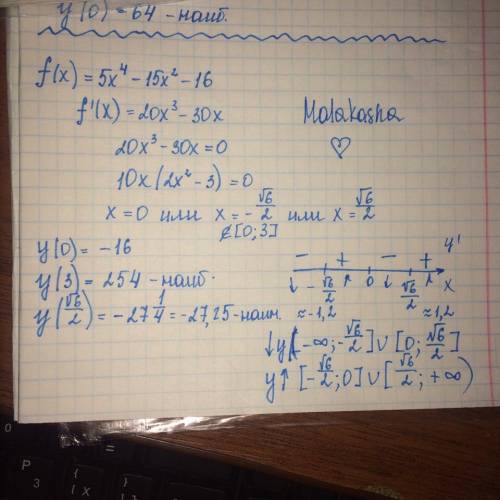 y(0) = 64 - наиб.
f(x) = 5x⁴ - 15x² - 16
f'(x) = 20x³ - 30x
Malakasha
♡
20x³ - 30x = 0
10x(2x² - 3) = 0
x = 0 или x = -√6/2 или x = √6/2
∉ [0; 3]
y(0) = -16
y(3) = 254 - наиб.
y(√6/2) = -27 1/4 = -27,25 - наим.
- + - + y'
↓ -√6/2 ↑ 0 ↓ √6/2 ↑ x
≈ -1,2 ≈ 1,2
↓y[-∞; -√6/2] ∪ [0; √6/2]
y↑ [-√6/2; 0] ∪ [√6/2; +∞)
0
=
P
3
{
[
X
}